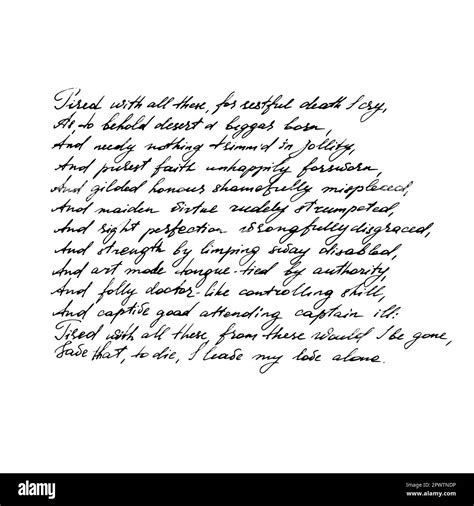 Tired with all these, for restful death I cry,
As, to behold desert a beggar born,
And needy nothing trimm'd in jollity,
And purest faith unhappily forsworn,
And gilded honour shamefully misplaced,
And maiden virtue rudely strumpeted,
And right perfection wrongfully disgraced,
And strength by limping sway disabled,
And art made tongue-tied by authority,
And folly doctor-like controlling skill,
And captive good attending captain ill:
Tired with all these, from these would I be gone,
Save that, to die, I leave my love alone.
alamy
Image ID: 2PWTNDP
www.alamy.com